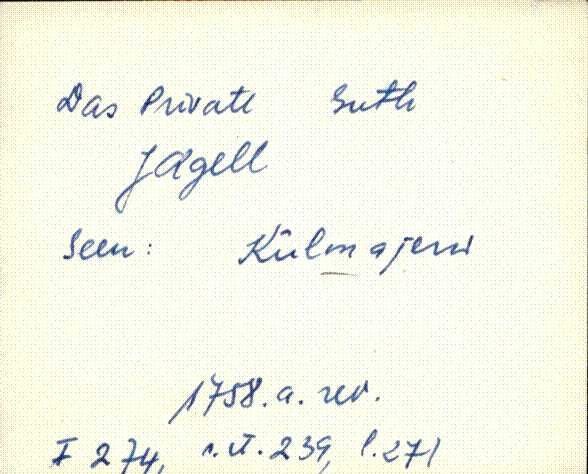 Das Private Guth
Jägell
Seen: Külmajerw
1758. a. rev.
F 274, n. 239, l. 271